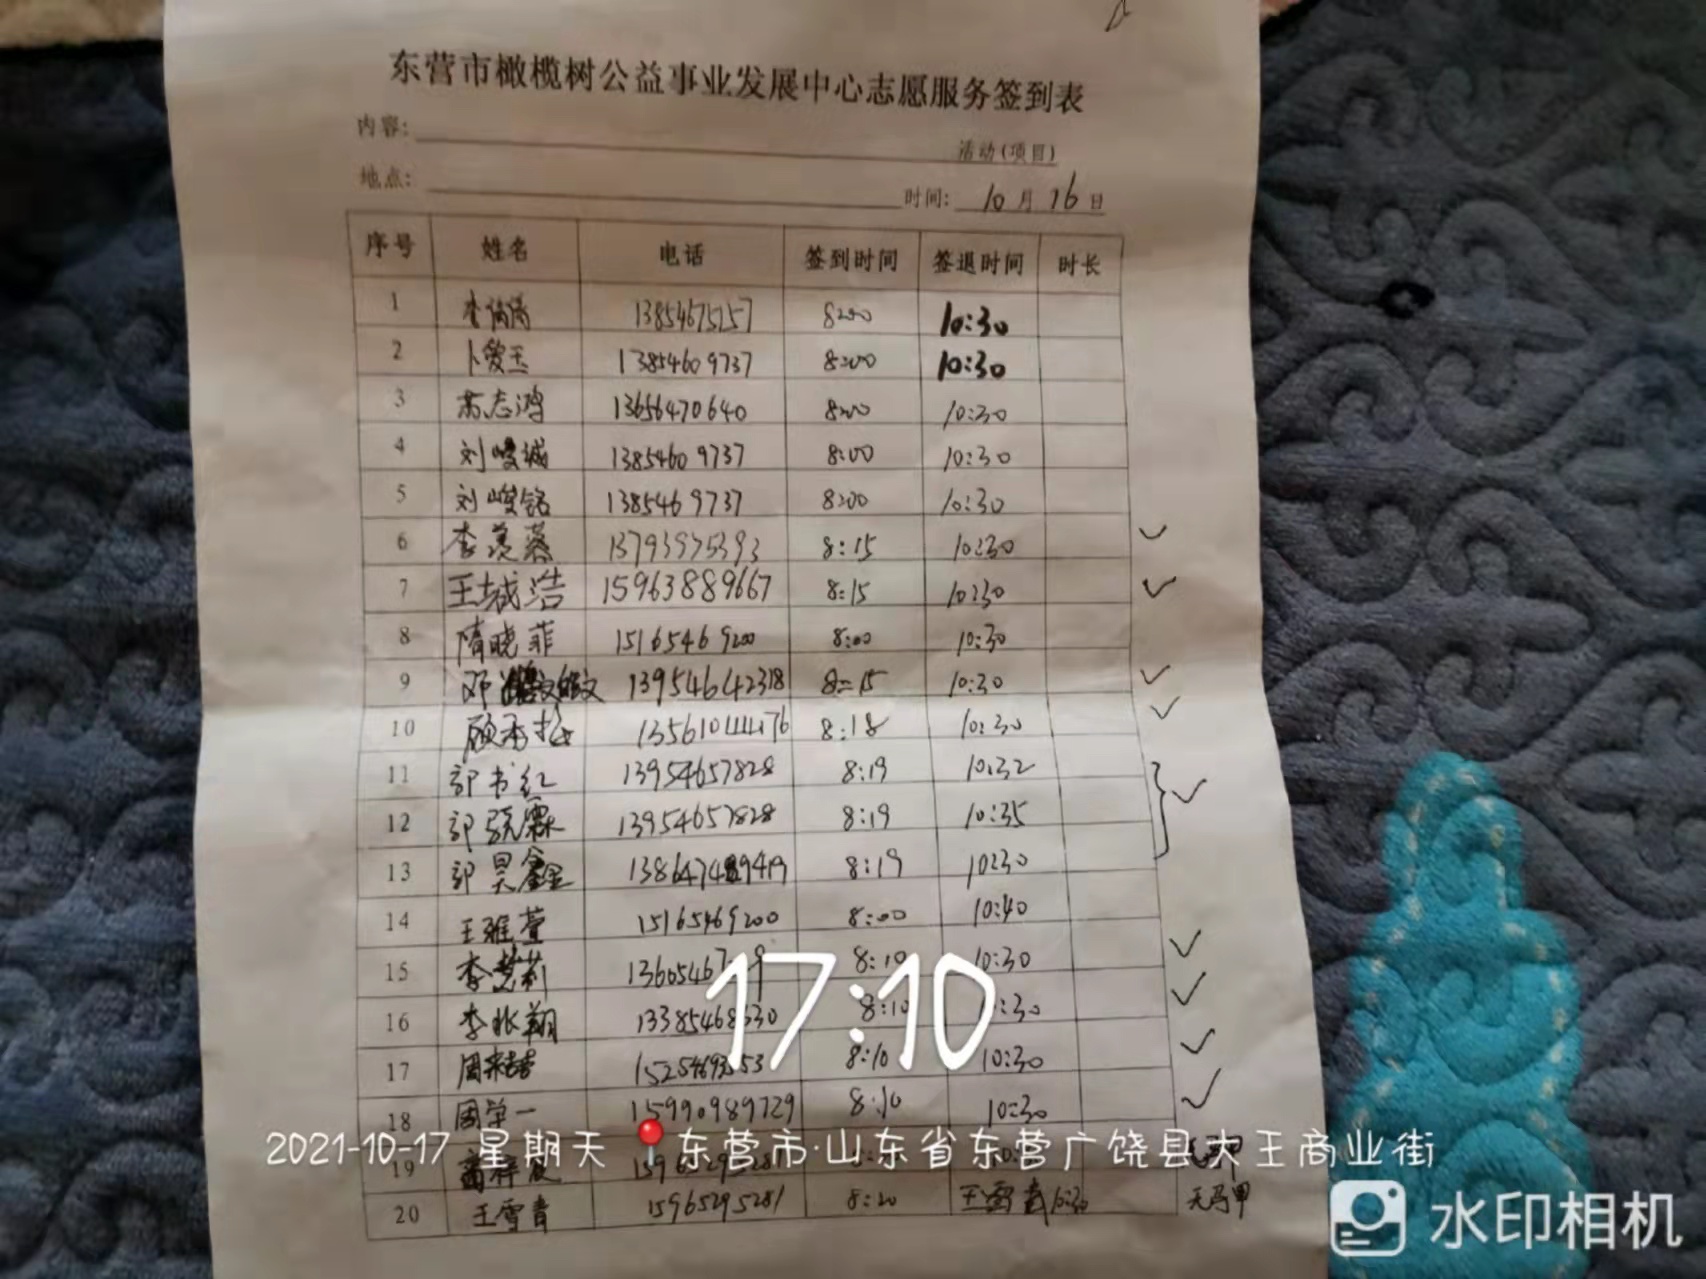 东营市橄榄树公益事业发展中心志愿服务签到表
内容:
活动(项目)
地点:
时间: 10月16日
序号 姓名 电话 签到时间 签退时间 时长
1 李倩倩 13854675157 8:00 10:30
2 卜爱玉 13854609737 8:00 10:30
3 志鸿 13656470640 8:00 10:30
4 刘峻诚 13854609737 8:00 10:30
5 刘峻铭 1385469737 8:00 10:30
6 李 13793975393 8:15 10:30
7 王城浩 15963889667 8:15 10:30
8 隋晓菲 15165469200 8:00 10:30
9 邓 8:15 10:30
10 顾秀梅 8:18 10:30
11 郭书红 13954657828 8:19 10:32
12 郭晓霖 13954657828 8:19 10:35
13 郭昊鑫 8:19 10:30
14 王雅萱 15165469200 8:00 10:40
15 李慧莉 8:10 10:30
16 李兆翔 8:10 :30
17 周 8:10 10:30
18 周学一 15990989729 8:10 10:30
19
20 王雪青 15965295281 8:20 王雪青10:30 无马甲
17:10
2021-10-17 星期天 东营市·山东省东营广饶县大王商业街
水印相机